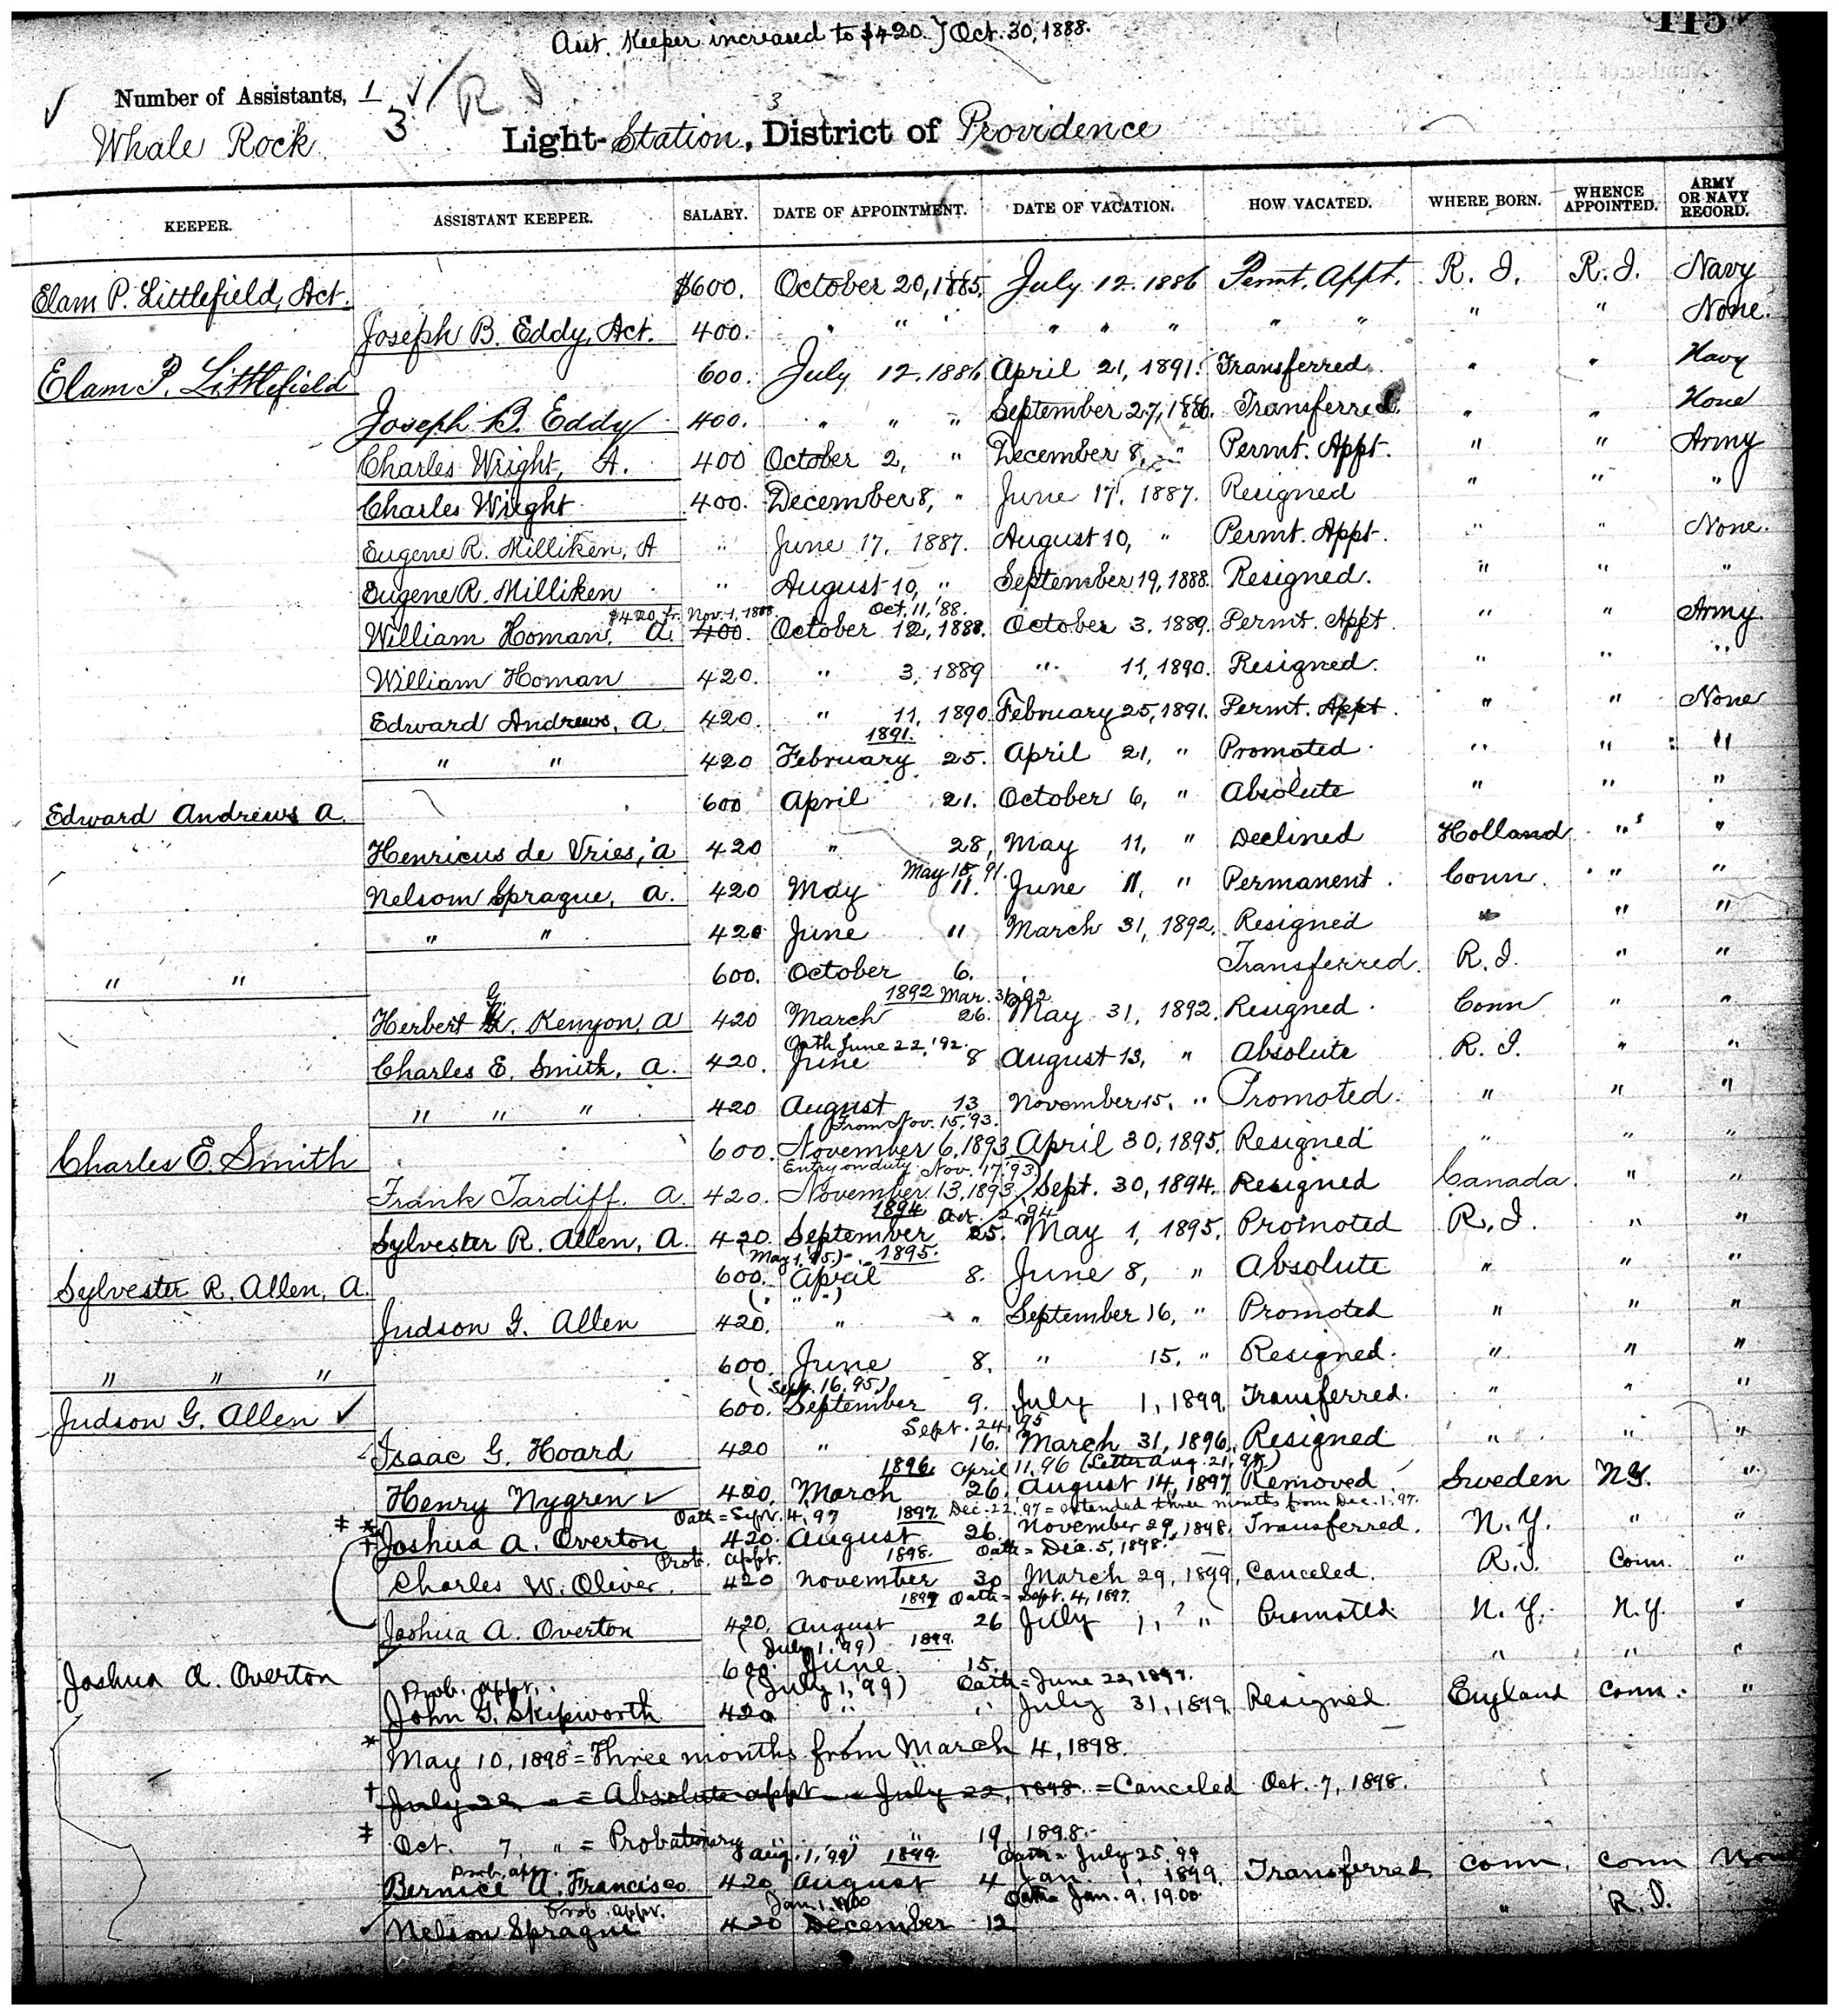 Asst. Keeper increased to $420. } Oct. 30, 1888.
115
Number of Assistants, 1
3 R I
3
Whale Rock Light-Station, District of Providence
KEEPER. ASSISTANT KEEPER. SALARY. DATE OF APPOINTMENT. DATE OF VACATION. HOW VACATED. WHERE BORN. WHENCE APPOINTED. ARMY OR NAVY RECORD.
Elam P. Littlefield, Act. $600. October 20, 1885. July 12. 1886 Permt. Appt. R. I. R. I. Navy
Joseph B. Eddy, Act. 400. " " " " " " " " " None.
Elam P. Littlefield 600. July 12. 1886 April 21, 1891. Transferred. " " Navy
Joseph B. Eddy 400. " " " September 27, 1886. Transferred. " " None
Charles Wright, A. 400 October 2, " December 8, " Permt. Appt. " " Army
Charles Wright 400. December 8, " June 17. 1887. Resigned " " "
Eugene R. Milliken, A " June 17. 1887. August 10, " Permt. Appt. " " None.
Eugene R. Milliken " August 10, " September 19, 1888. Resigned. " " "
$420 fr. Nov. 1, 1888 Oct. 11, '88.
William Homan, A 400. October 12, 1888. October 3. 1889. Permt. Appt. " " Army.
William Homan 420. " 3, 1889 " 11, 1890. Resigned. " " "
Edward Andrews, A. 420. " 11, 1890. February 25, 1891. Permt. Appt. " " None
1891.
" " 420 February 25. April 21, " Promoted. " " "
Edward Andrews A. 600 April 21. October 6, " Absolute " " "
Henricus de Vries, a 420 " 28, May 11, " Declined Holland. " "
May 15, 91.
Nelson Sprague, a. 420 May 11. June 11, " Permanent. Conn. " "
" " 420 June " March 31, 1892. Resigned " " "
" " 600. October 6. Transferred. R. I. " "
1892 Mar. 31, 92.
Herbert G. Kenyon, a 420 March 26. May 31, 1892. Resigned. Conn " "
Oath June 22, '92.
Charles E. Smith, a. 420. June 8 August 13, " Absolute R. I. " "
" " " 420 August 13 November 15, " Promoted. " " "
From Nov. 15, 93.
Charles E. Smith 600. November 6, 1893 April 30, 1895. Resigned " " "
Entry on duty Nov. 17, 93)
Frank Tardiff. a. 420. November 13, 1893. Sept. 30, 1894. Resigned Canada. " "
1894 Oct. 2, 94
Sylvester R. Allen, A. 420. September 25. May 1, 1895. Promoted R. I. " "
(May 1, 95) 1895.
Sylvester R. Allen, A. 600. April 8. June 8, " Absolute " " "
(" " ")
Judson G. Allen 420. " " September 16, " Promoted " " "
" " " 600 June 8. " 15. " Resigned. " " "
(Sept. 16. 95)
Judson G. Allen 600. September 9. July 1, 1899. Transferred. " " "
Sept. 24, 95
Isaac G. Hoard 420 " 16. March 31, 1896. Resigned " " "
1896. April 11. 96 (Letter Aug. 21, 97.)
Henry Nygren 420. March 26. August 14, 1897 Removed. Sweden N.Y. "
Oath = Sept. 4, 97 1897. Dec. 22. 97 = extended three months from Dec. 1. 97.
‡ * † Joshua A. Overton 420. August 26. November 29, 1898. Transferred. N. Y. " "
Prob. appt. 1898. Oath = Dec. 5, 1898.
Charles W. Oliver. 420 November 30 March 29, 1899, Canceled. R. I. Conn. "
1897 Oath = Sept. 4, 1897.
Joshua A. Overton 420. August 26 July 1, " Promoted N. Y. N.Y. "
(July 1, 99) 1899.
Joshua A. Overton 600. June 15. " " "
Prob. appt. (July 1, 99) Oath = June 22, 1899.
John G. Skipworth 420 " " July 31, 1899. Resigned. England Conn. "
* May 10, 1898 = Three months from March 4, 1898.
† July 22, " = Absolute appt " July 22, 1898. = Canceled Oct. 7, 1898.
‡ Oct. 7, " = Probationary " " 19, 1898.
Prob. appt. Aug. 1, 99) 1899. Oath = July 25, 99
Bernice A. Francisco 420 August 4 Jan. 1, 1899. Transferred Conn. Conn Non
Prob. appt. Jan 1. 1900 Oath = Jan. 9. 1900
Nelson Sprague 420 December 12 " R. I.